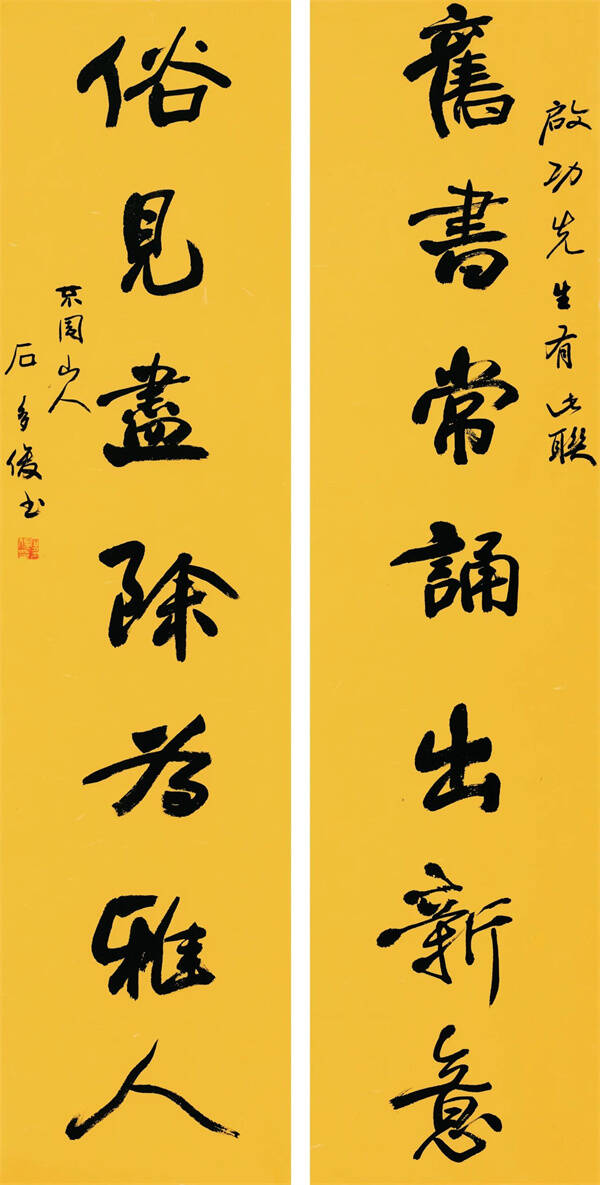 啟功先生有此聯
舊書常誦出新意
俗見盡除為雅人
石多俊书